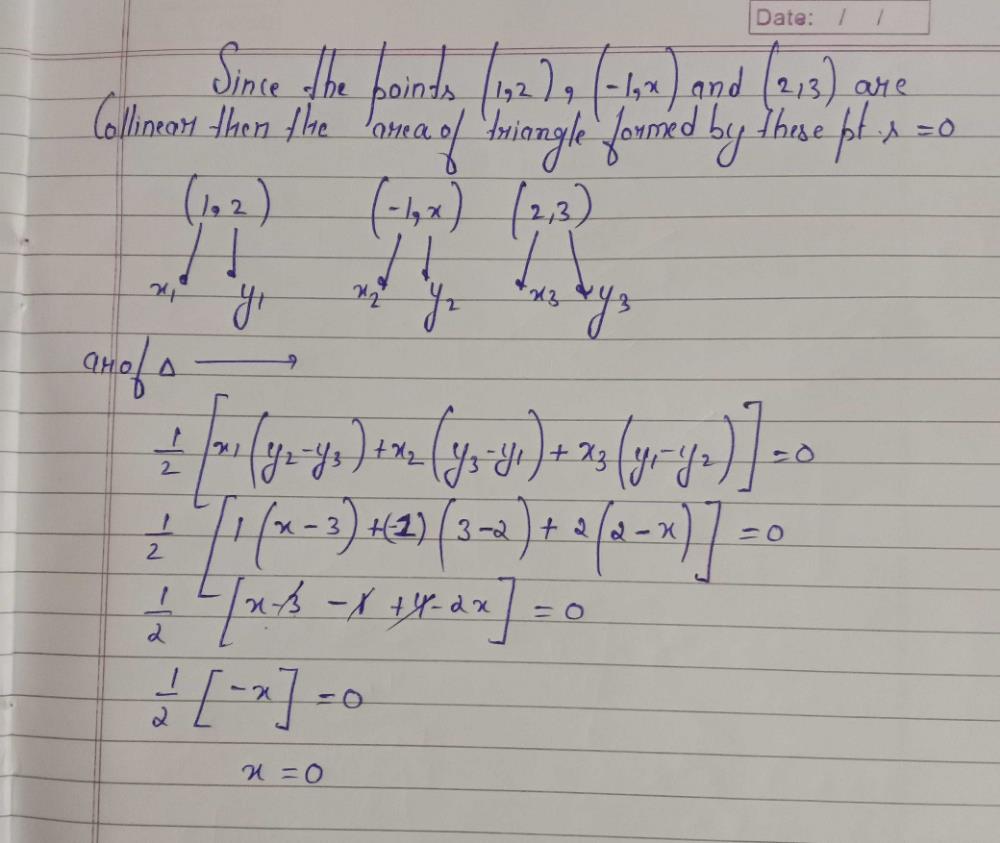 Date: / /
Since the points (1,2), (-1,x) and (2,3) are
Collinear then the area of triangle formed by these pt.s =0
(1,2) (-1,x) (2,3)
x₁ y₁ x₂ y₂ x₃ y₃
ar of Δ ⟶
1/2 [x₁(y₂-y₃)+x₂(y₃-y₁)+x₃(y₁-y₂)]=0
1/2 [1(x-3)+(-1)(3-2)+2(2-x)]=0
1/2 [x-3-1+4-2x]=0
1/2 [-x]=0
x=0